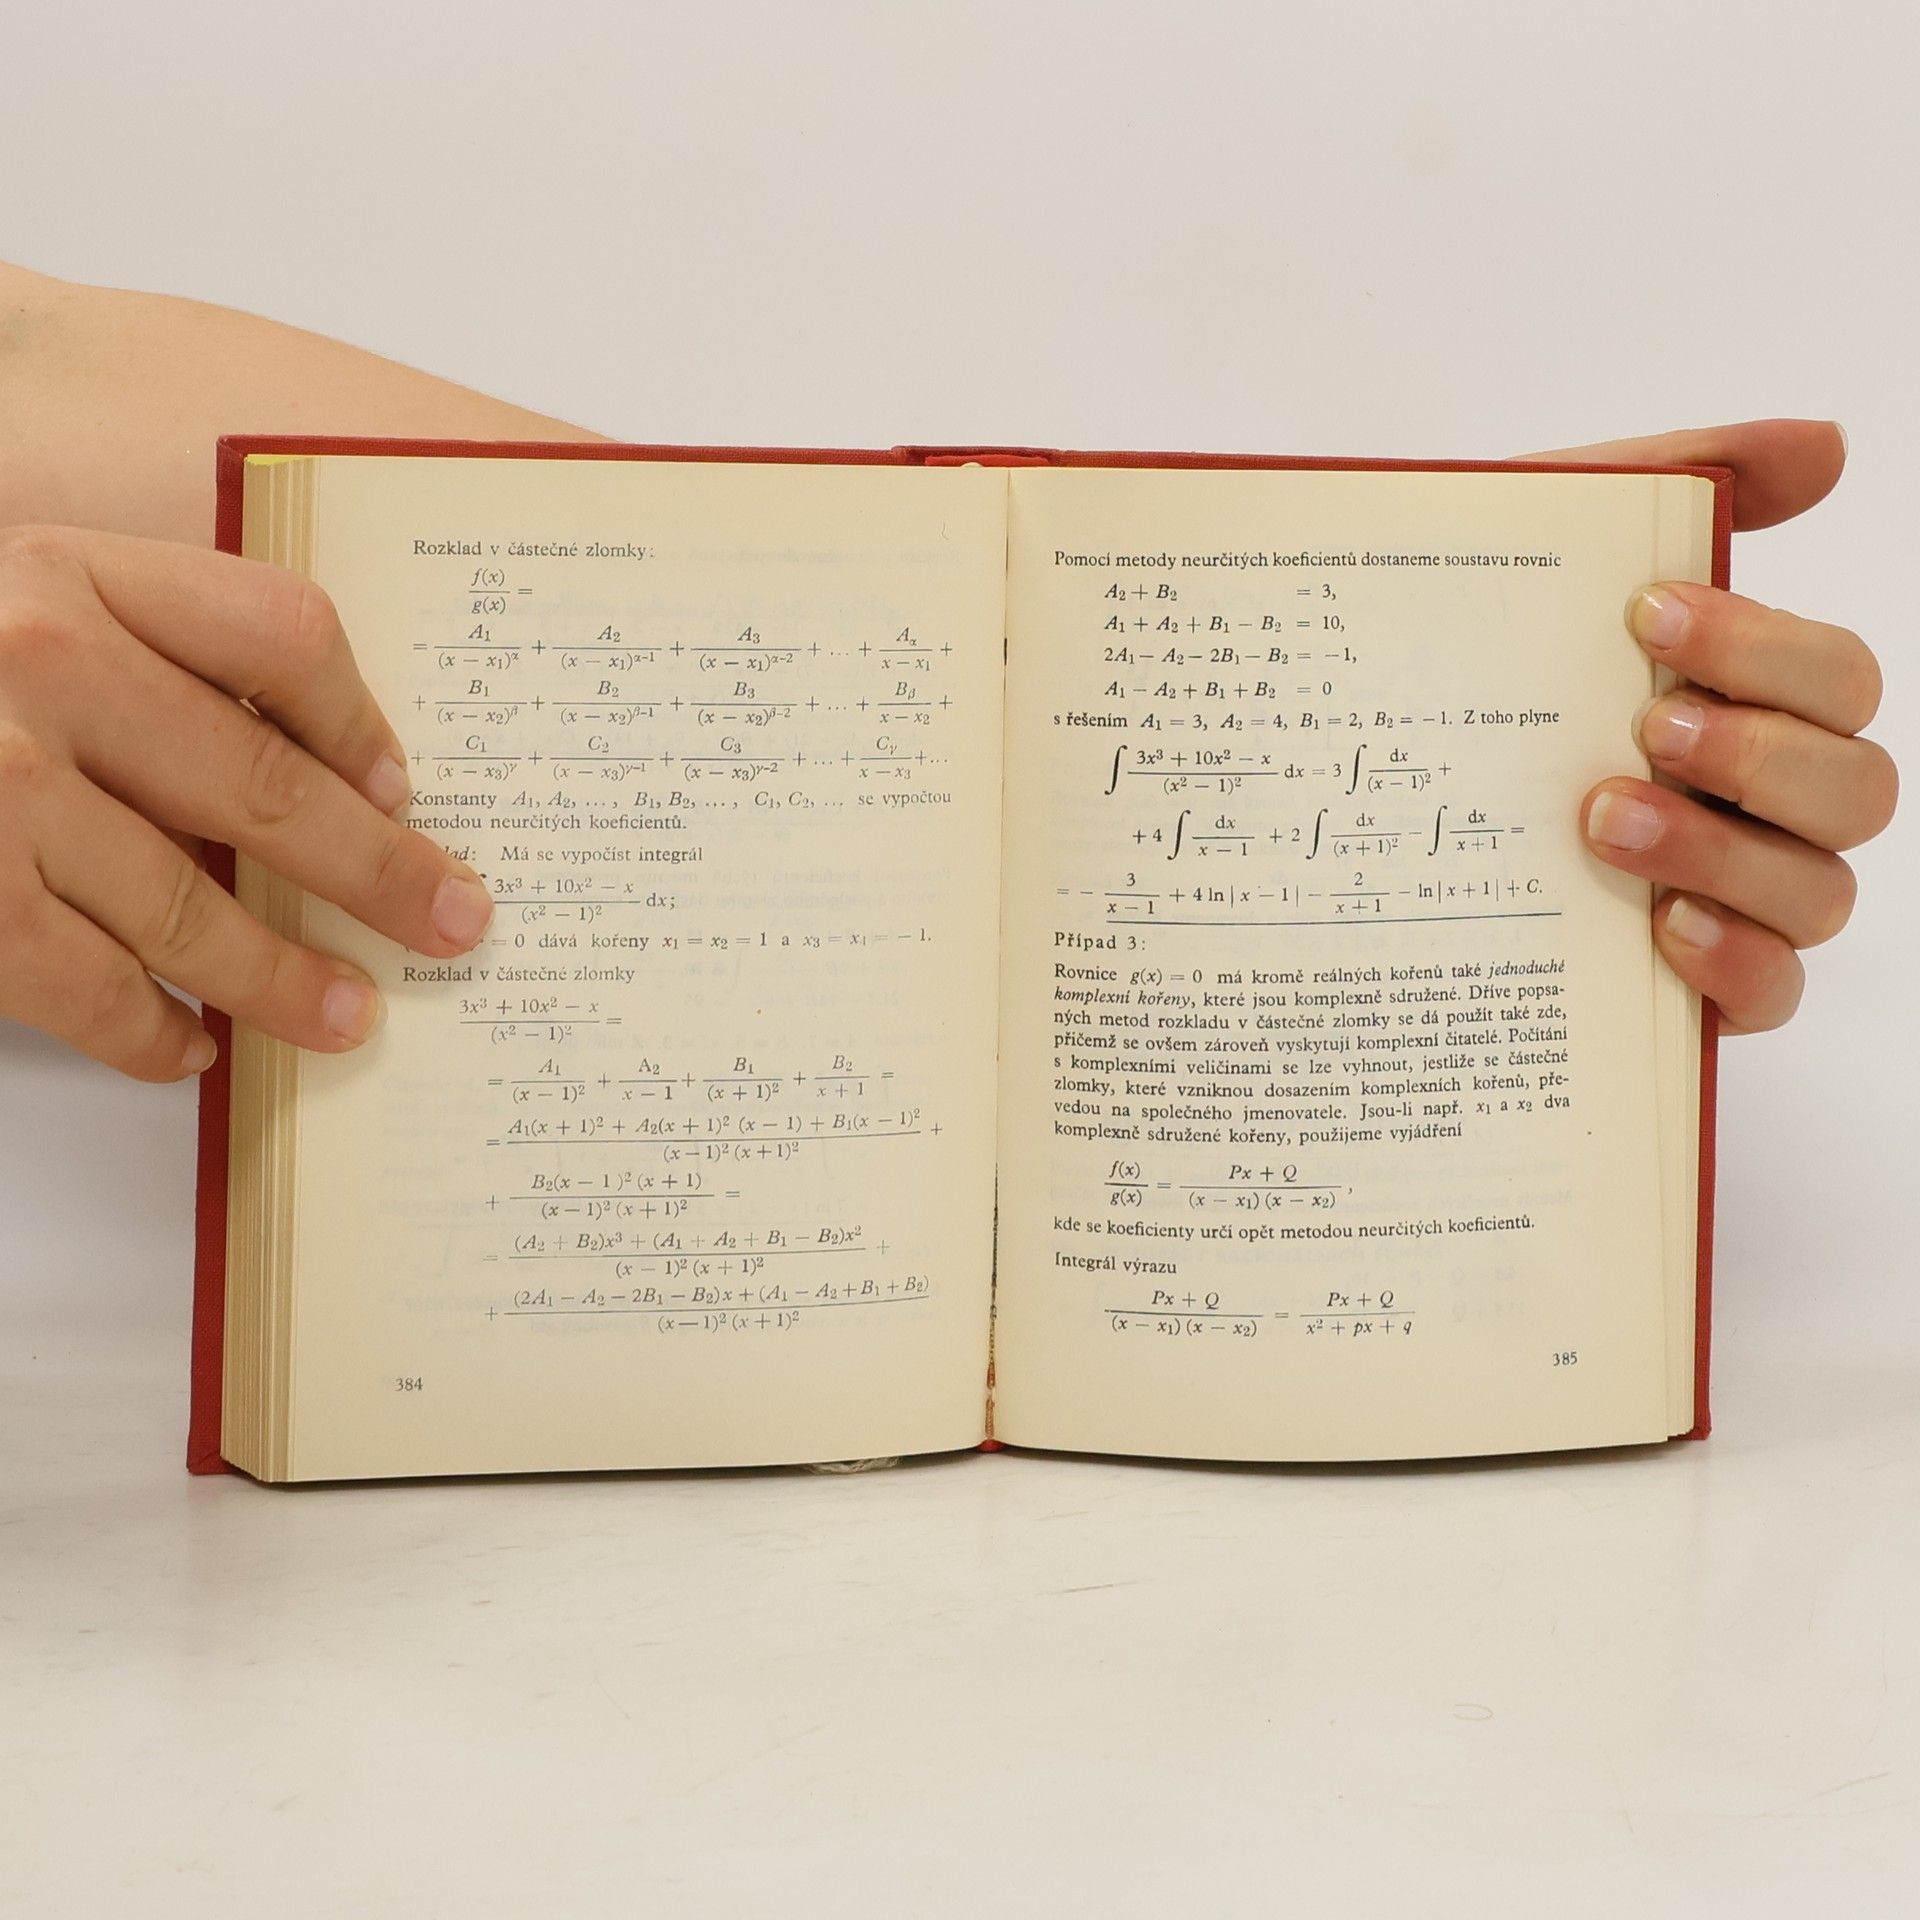 Rozklad v částečné zlomky:
f(x)/g(x) =
= A₁/(x − x₁)^α + A₂/(x − x₁)^(α−1) + A₃/(x − x₁)^(α−2) + ... + A_α/(x − x₁) +
+ B₁/(x − x₂)^β + B₂/(x − x₂)^(β−1) + B₃/(x − x₂)^(β−2) + ... + B_β/(x − x₂) +
+ C₁/(x − x₃)^γ + C₂/(x − x₃)^(γ−1) + C₃/(x − x₃)^(γ−2) + ... + C_γ/(x − x₃) + ...
Konstanty A₁, A₂, ..., B₁, B₂, ..., C₁, C₂, ... se vypočtou
metodou neurčitých koeficientů.
Má se vypočíst integrál
(3x³ + 10x² − x)/(x² − 1)² dx;
= 0 dává kořeny x₁ = x₂ = 1 a x₃ = x₄ = − 1.
Rozklad v částečné zlomky
(3x³ + 10x² − x)/(x² − 1)² =
= A₁/(x − 1)² + A₂/(x − 1) + B₁/(x + 1)² + B₂/(x + 1) =
= (A₁(x + 1)² + A₂(x + 1)² (x − 1) + B₁(x − 1)²)/((x − 1)² (x + 1)²) +
+ (B₂(x − 1)² (x + 1))/((x − 1)² (x + 1)²) =
= ((A₂ + B₂)x³ + (A₁ + A₂ + B₁ − B₂)x²)/((x − 1)² (x + 1)²) +
+ ((2A₁ − A₂ − 2B₁ − B₂)x + (A₁ − A₂ + B₁ + B₂))/((x − 1)² (x + 1)²)
384
Pomocí metody neurčitých koeficientů dostaneme soustavu rovnic
A₂ + B₂ = 3,
A₁ + A₂ + B₁ − B₂ = 10,
2A₁ − A₂ − 2B₁ − B₂ = −1,
A₁ − A₂ + B₁ + B₂ = 0
s řešením A₁ = 3, A₂ = 4, B₁ = 2, B₂ = − 1. Z toho plyne
∫ (3x³ + 10x² − x)/(x² − 1)² dx = 3 ∫ dx/(x − 1)² +
+ 4 ∫ dx/(x − 1) + 2 ∫ dx/(x + 1)² − ∫ dx/(x + 1) =
= − 3/(x − 1) + 4 ln | x − 1 | − 2/(x + 1) − ln | x + 1 | + C.
Případ 3:
Rovnice g(x) = 0 má kromě reálných kořenů také jednoduché
komplexní kořeny, které jsou komplexně sdružené. Dříve popsa-
ných metod rozkladu v částečné zlomky se dá použít také zde,
přičemž se ovšem zároveň vyskytují komplexní čitatelé. Počítání
s komplexními veličinami se lze vyhnout, jestliže se částečné
zlomky, které vzniknou dosazením komplexních kořenů, pře-
vedou na společného jmenovatele. Jsou-li např. x₁ a x₂ dva
komplexně sdružené kořeny, použijeme vyjádření
f(x)/g(x) = (Px + Q)/((x − x₁) (x − x₂)),
kde se koeficienty určí opět metodou neurčitých koeficientů.
Integrál výrazu
(Px + Q)/((x − x₁) (x − x₂)) = (Px + Q)/(x² + px + q)
385